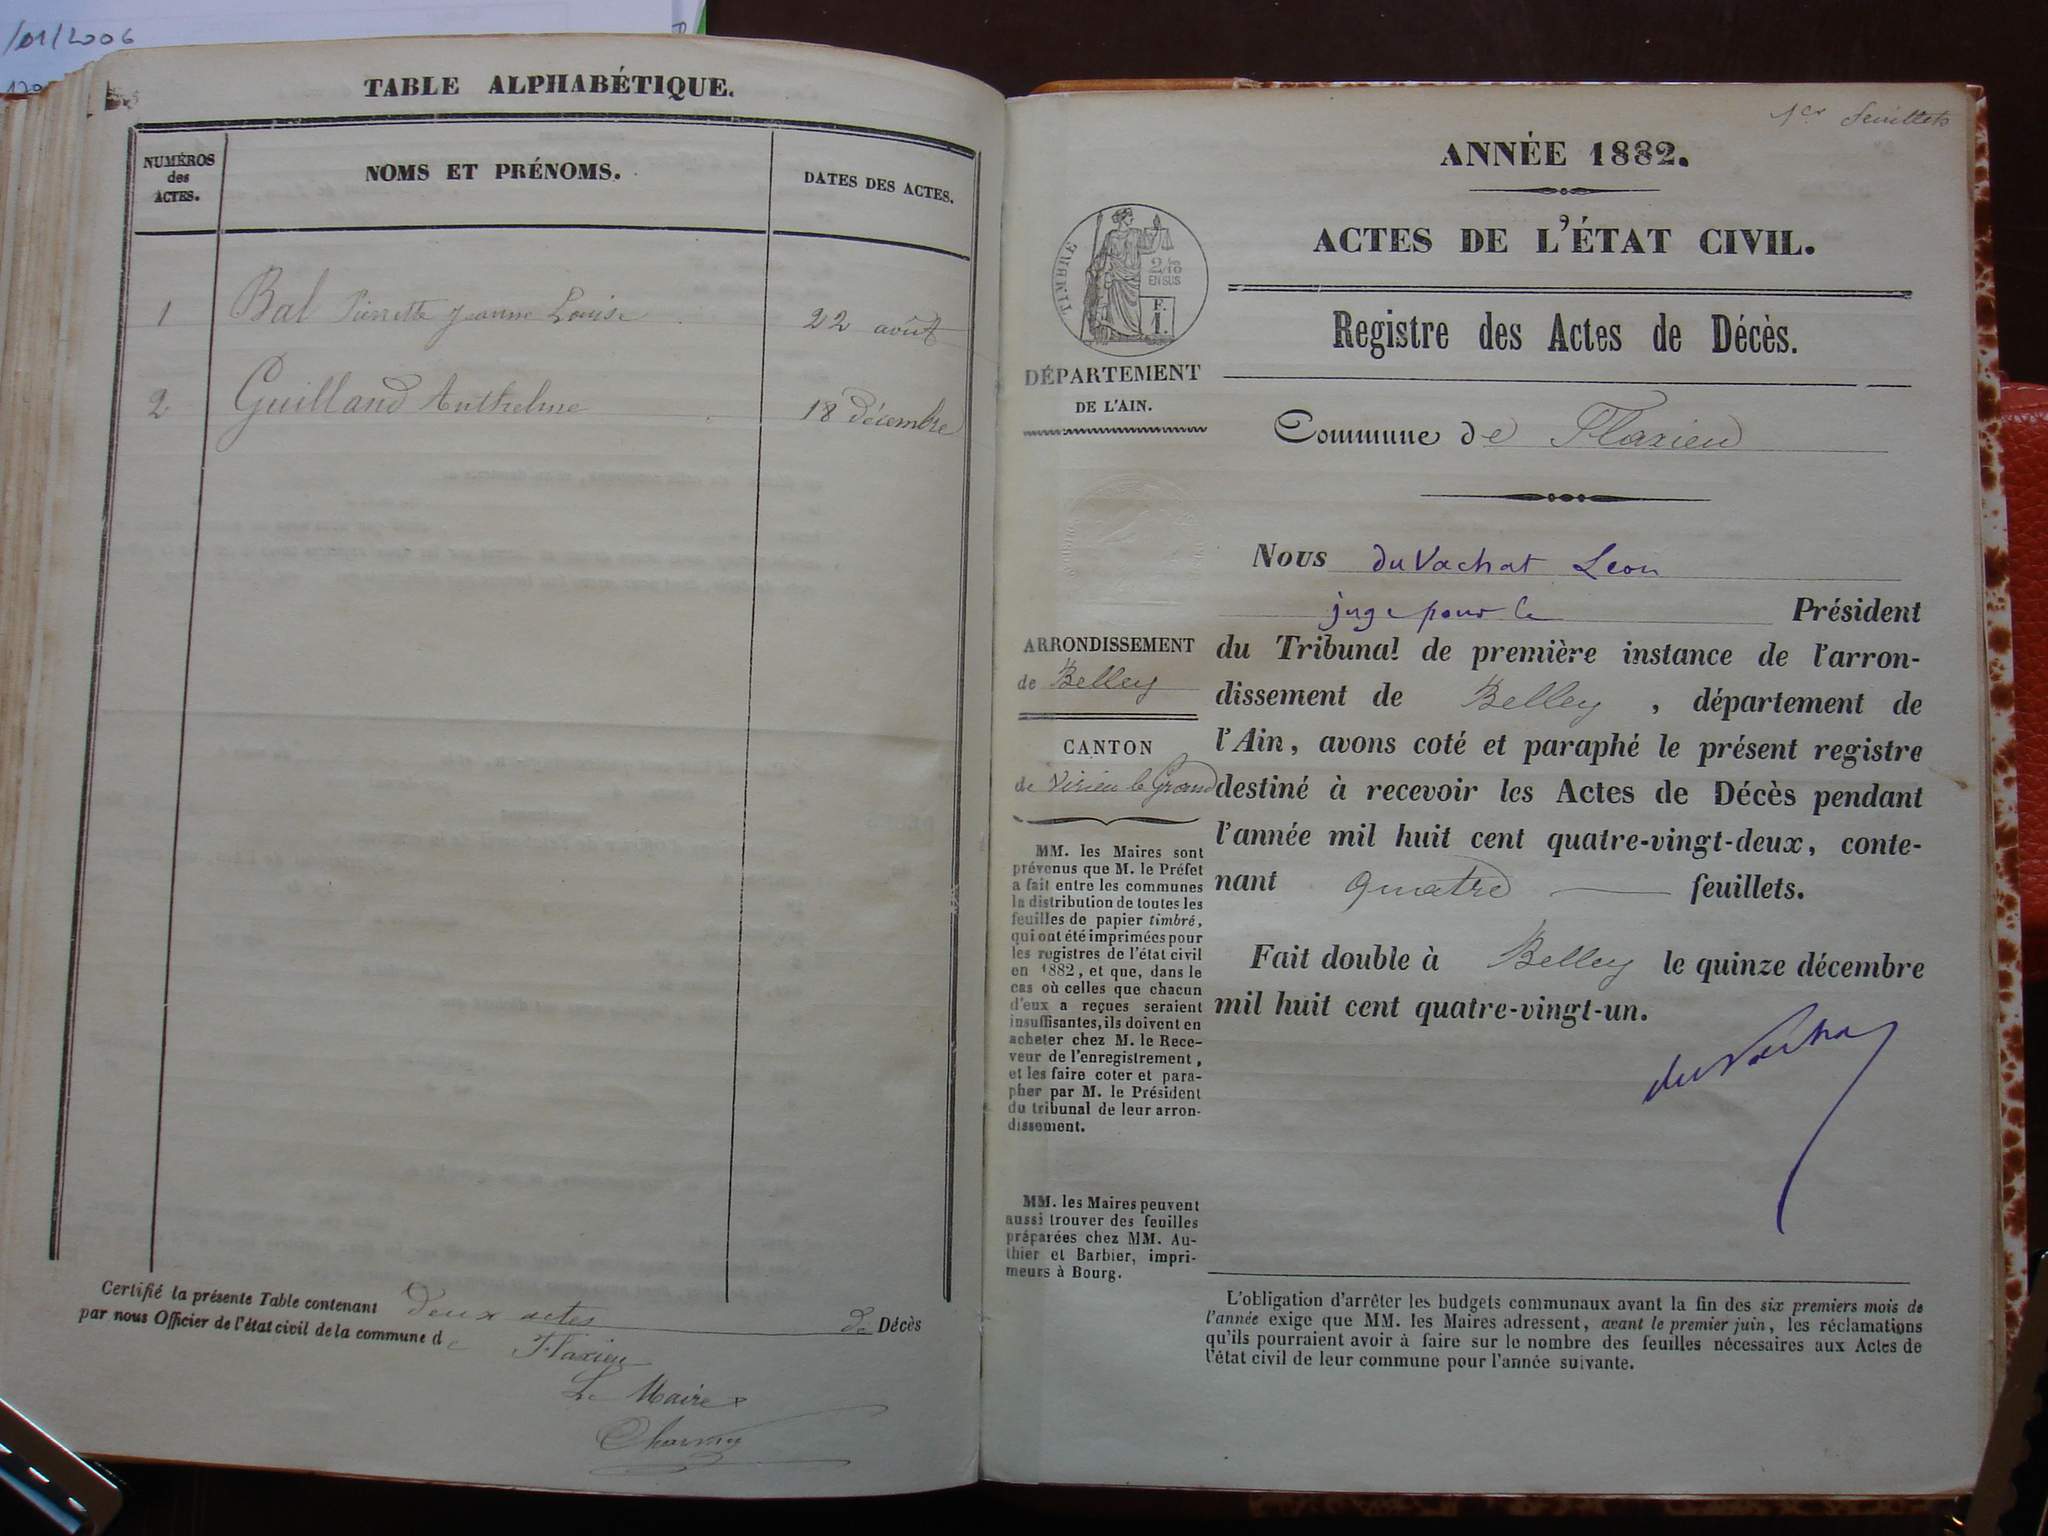 /01/2006
TABLE ALPHABÉTIQUE.
NUMÉROS des ACTES.
NOMS ET PRÉNOMS.
DATES DES ACTES.
1 Bal Pierrette Jeanne Louise 22 août
2 Guilland Anthelme 18 décembre
Certifié la présente Table contenant deux actes de Décès
par nous Officier de l'état civil de la commune de Flaxieu
Le Maire
1er feuillet
ANNÉE 1882.
ACTES DE L'ÉTAT CIVIL.
TIMBRE
2/10
EN SUS
F.
1.
Registre des Actes de Décès.
DÉPARTEMENT
DE L'AIN.
Commune de Flaxieu
Nous du Vachat Leon
juge pour le Président
du Tribunal de première instance de l'arron-
dissement de Belley, département de
l'Ain, avons coté et paraphé le présent registre
destiné à recevoir les Actes de Décès pendant
l'année mil huit cent quatre-vingt-deux, conte-
nant quatre feuillets.
Fait double à Belley le quinze décembre
mil huit cent quatre-vingt-un.
du Vachat
ARRONDISSEMENT
de Belley
CANTON
de Virieu le Grand
MM. les Maires sont
prévenus que M. le Préfet
a fait entre les communes
la distribution de toutes les
feuilles de papier timbré,
qui ont été imprimées pour
les registres de l'état civil
en 1882, et que, dans le
cas où celles que chacun
d'eux a reçues seraient
insuffisantes, ils doivent en
acheter chez M. le Rece-
veur de l'enregistrement,
et les faire coter et para-
pher par M. le Président
du tribunal de leur arron-
dissement.
MM. les Maires peuvent
aussi trouver des feuilles
préparées chez MM. Au-
thier et Barbier, impri-
meurs à Bourg.
L'obligation d'arrêter les budgets communaux avant la fin des six premiers mois de
l'année exige que MM. les Maires adressent, avant le premier juin, les réclamations
qu'ils pourraient avoir à faire sur le nombre des feuilles nécessaires aux Actes de
l'état civil de leur commune pour l'année suivante.